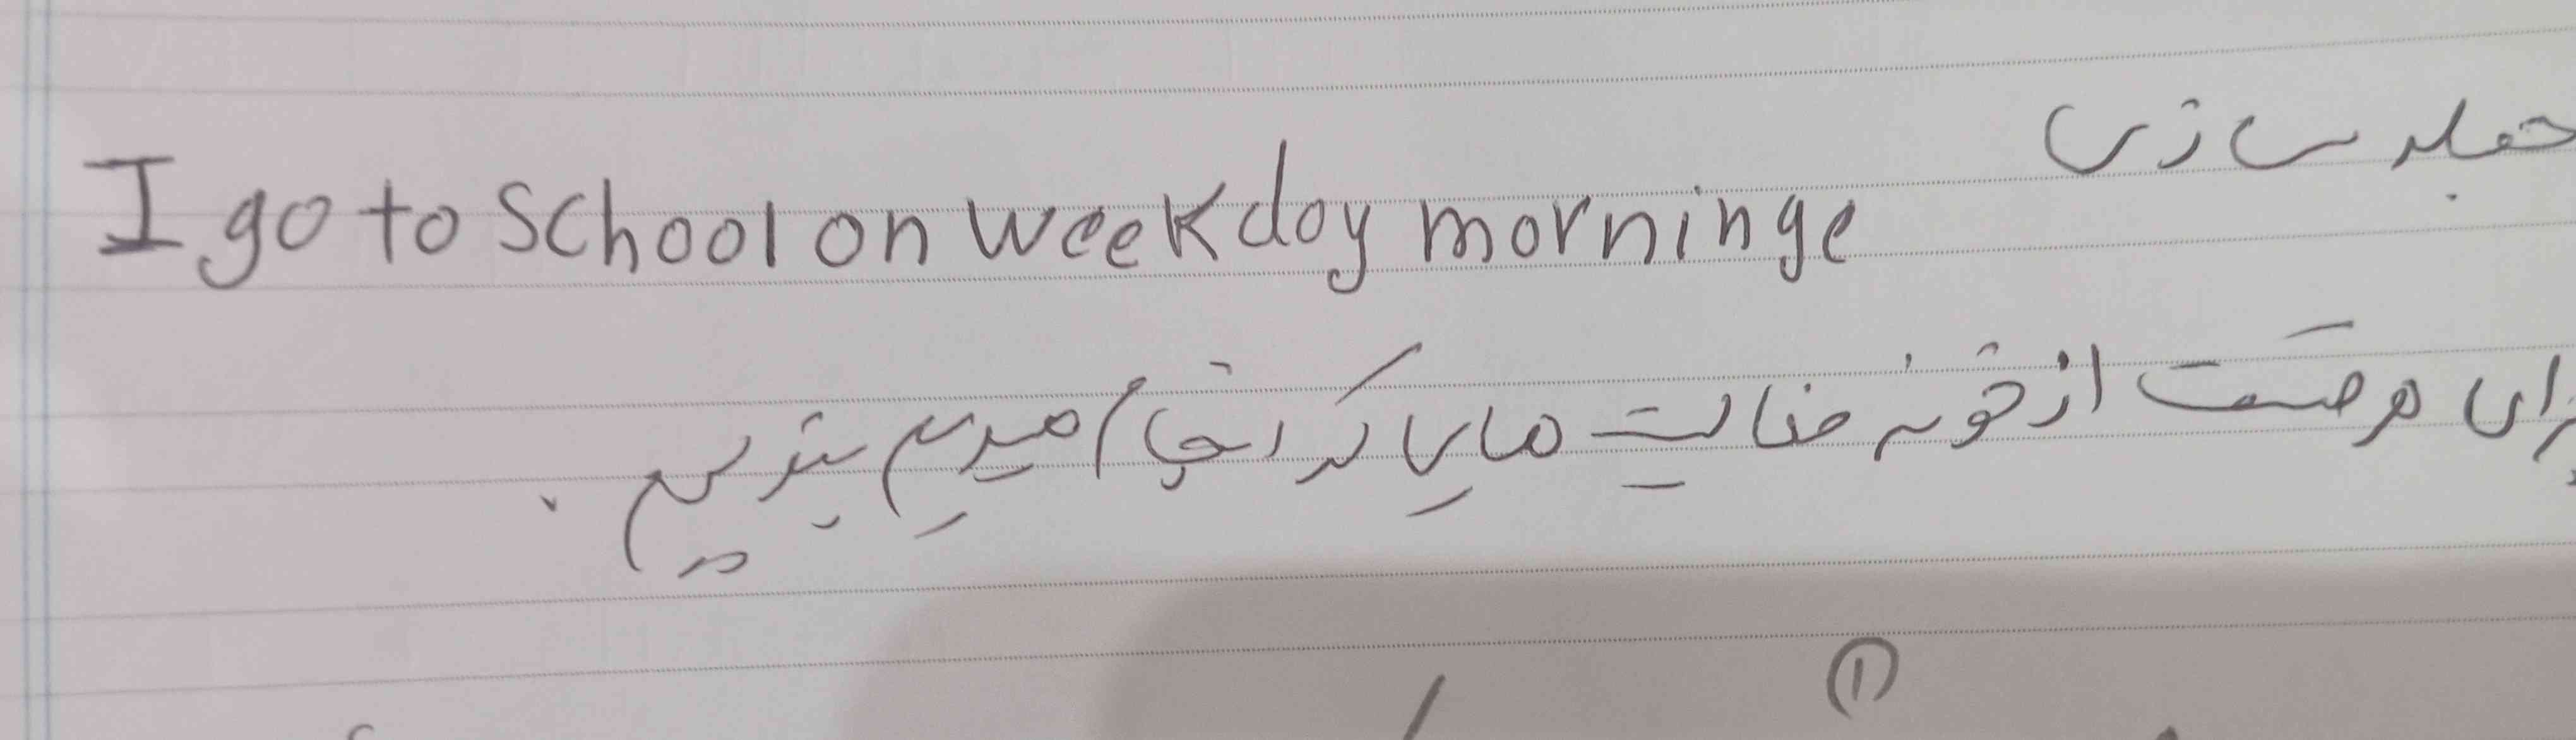 جمله سازی
I go to school on weekday morninge
برای هر قسمت از خونه فعالیت های که انجام میدیم بنویسیم .
①